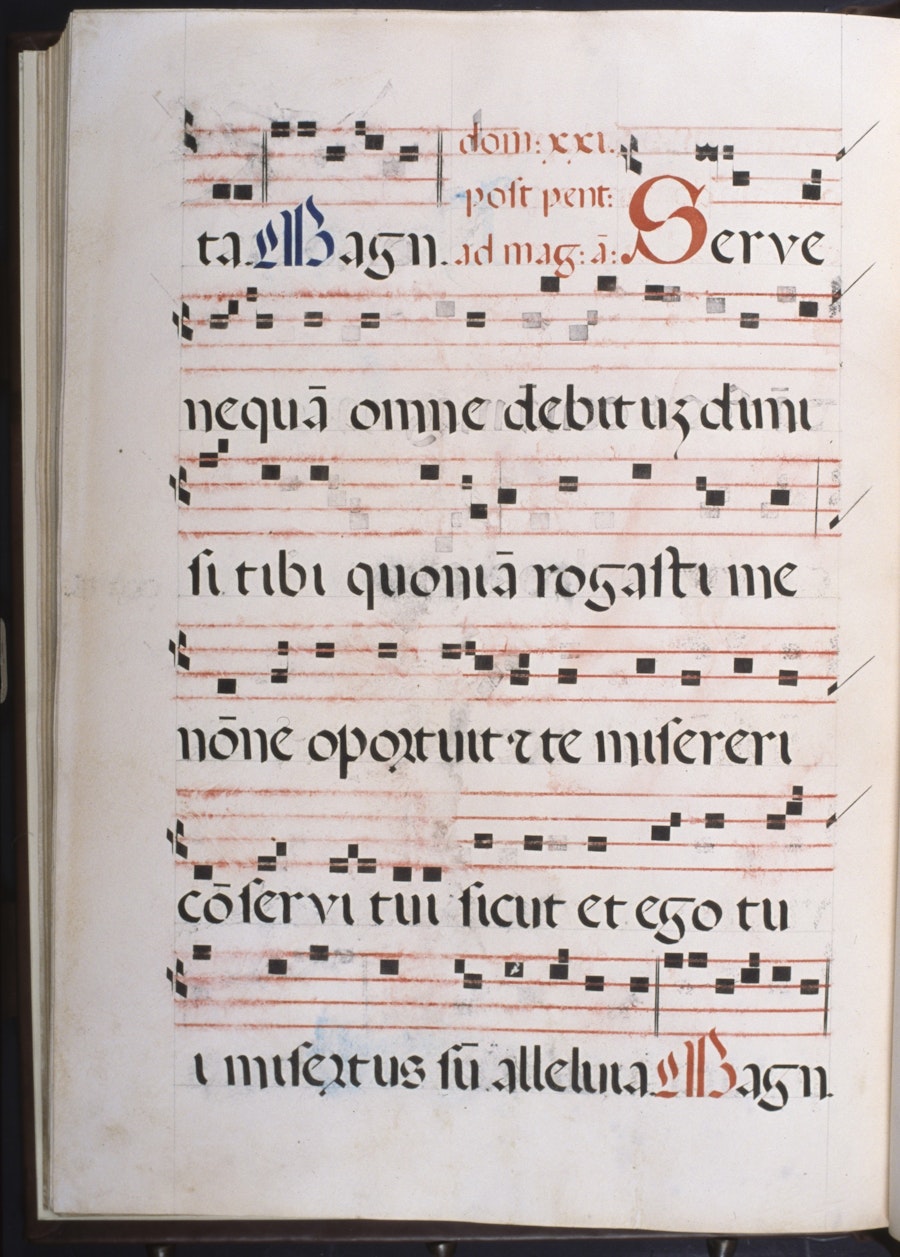 ta. Magn. dom: xxi.
post pent:
ad mag: ā: Serve
nequā omne debituz dimi
si tibi quoniā rogasti me
nōne oportuit ⁊ te misereri
cōservi tui sicut et ego tu
i misertus sū alleluia. Magn.